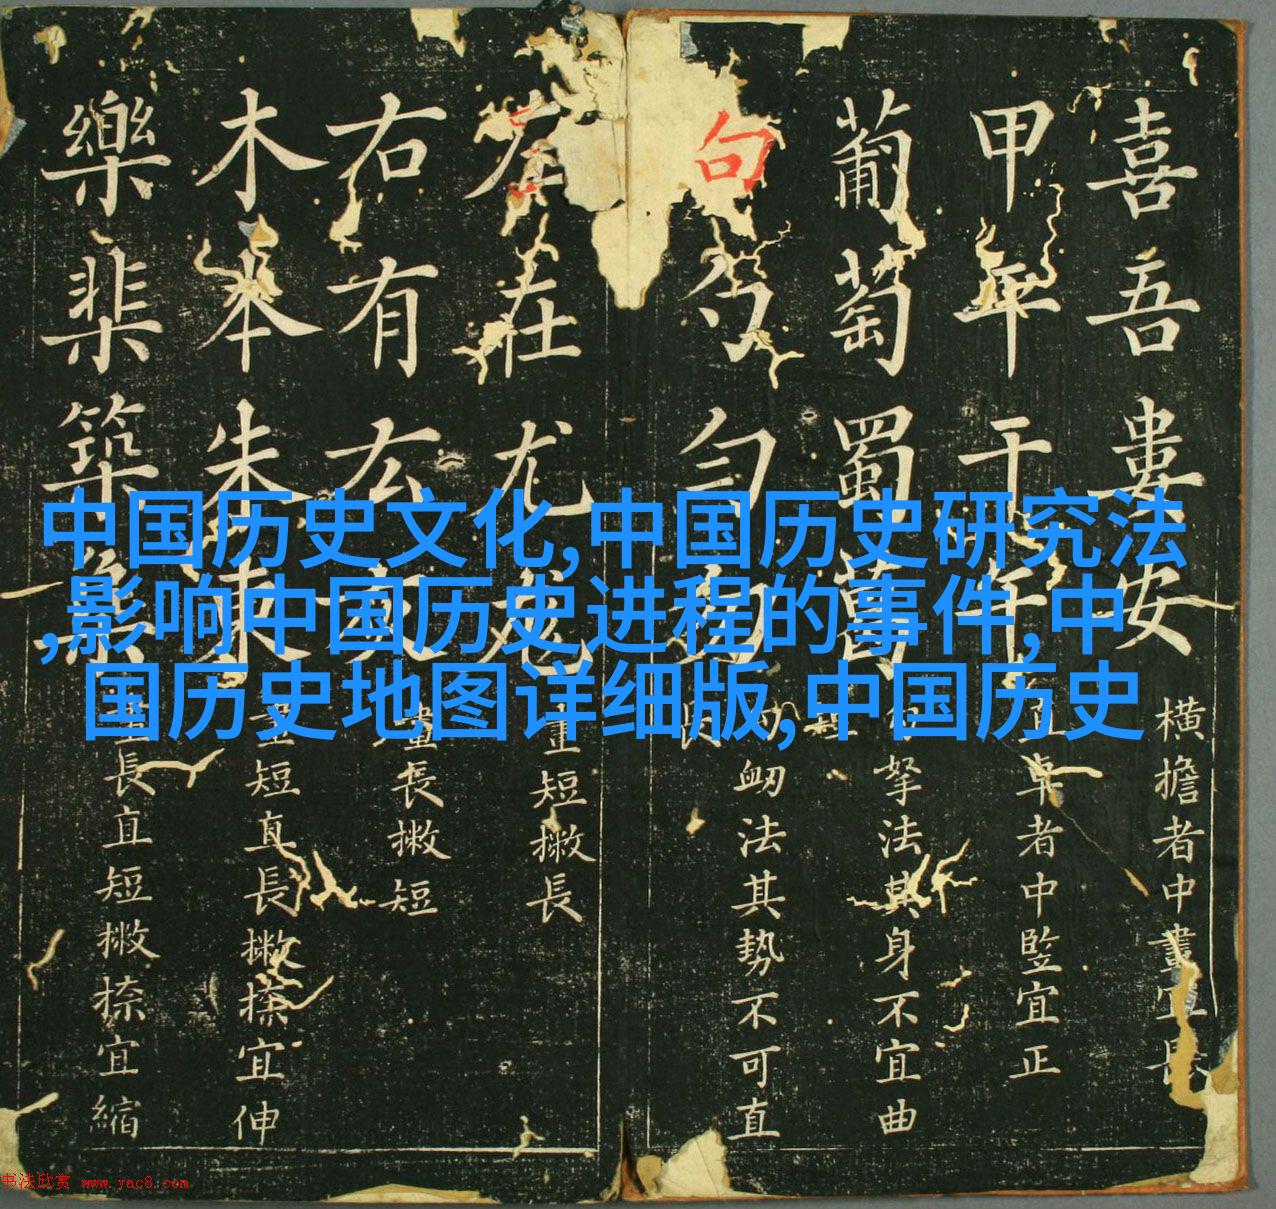 中国历史文化,中国历史研究法
,影响中国历史进程的事件,中
国历史地图详细版,中国历史
喜吾婁安
橫擔者中畫宜長
甲平干午
卓者中竪宜正
葡萄蜀萬
拏法其身不宜曲
句勹匀勿
衂法其势不可直
左在尤龙
畫短撇長
右有厷
畫長撇短
木本朱東
畫短真長撇捺宜伸
樂棐築集
畫長直短撇捺宜縮
书法欣赏 www.yac8.com